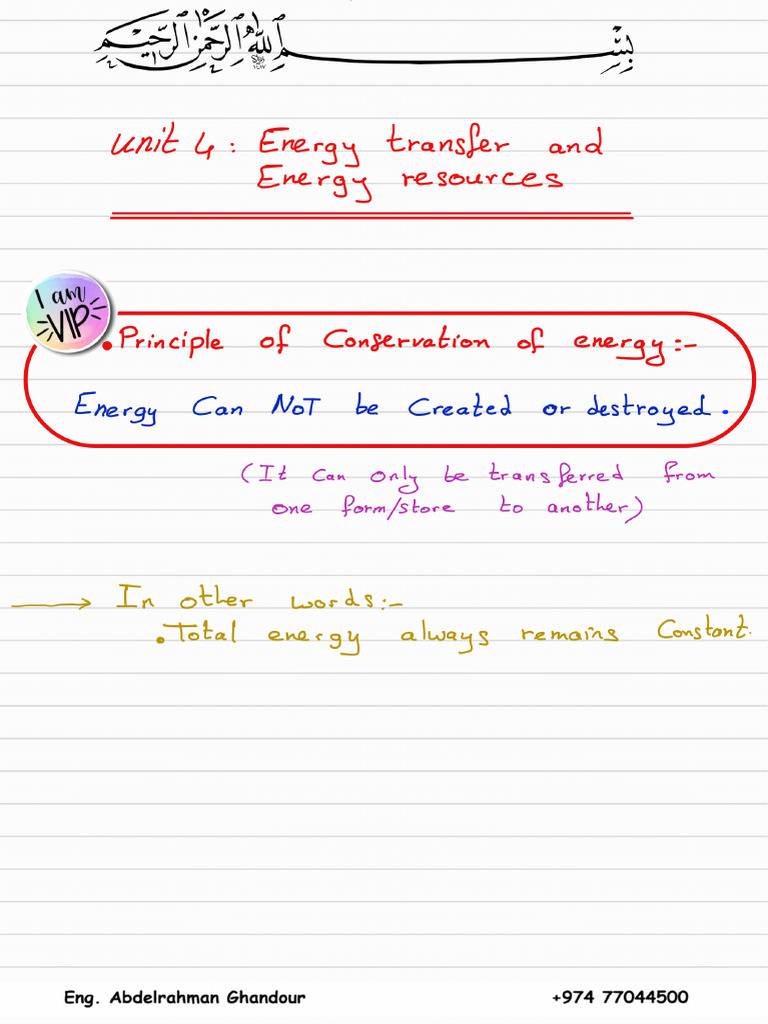 بِسْمِ اللهِ الرَّحْمٰنِ الرَّحِيْمِ
Unit 4 : Energy transfer and
Energy resources
I am
VIP
• Principle of Conservation of energy:-
Energy Can NOT be Created or destroyed.
(It can only be transferred from
one form/store to another)
→ In other words:-
• Total energy always remains Constant.
Eng. Abdelrahman Ghandour +974 77044500